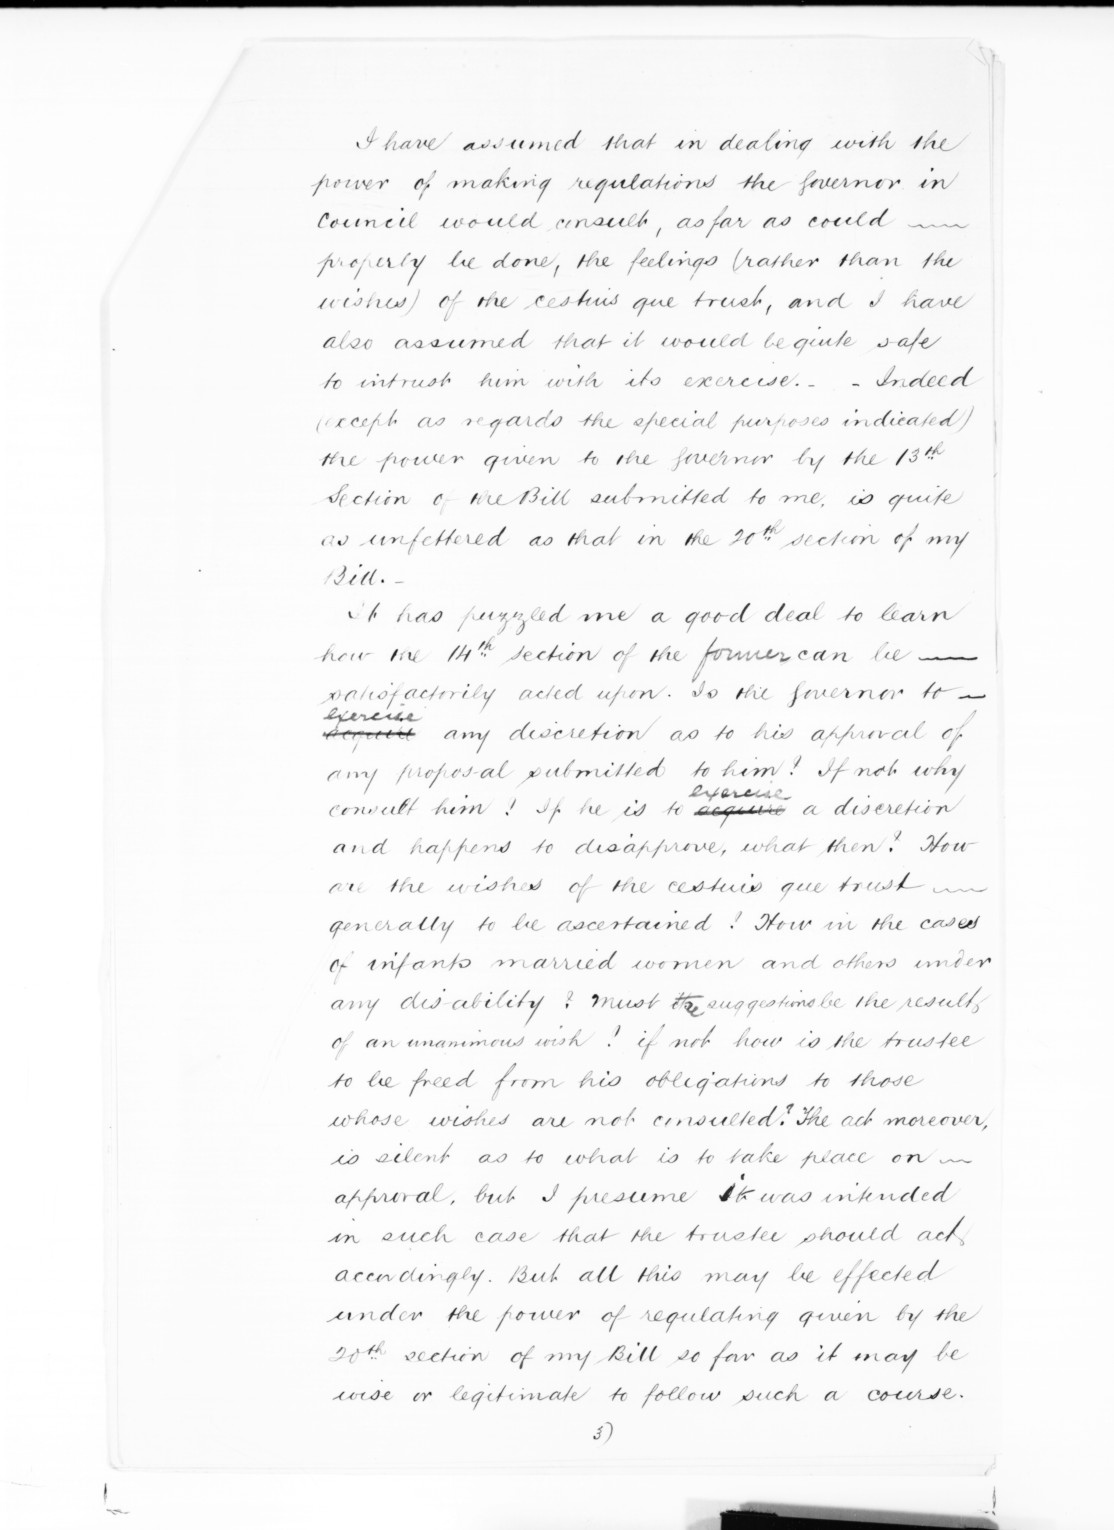 I have assumed that in dealing with the
power of making regulations the Governor in
Council would consult, as far as could
properly be done, the feelings (rather than the
wishes) of the cestuis que trust, and I have
also assumed that it would be quite safe
to intrust him with its exercise. - - Indeed
(except as regards the special purposes indicated)
the power given to the Governor by the 13th
Section of the Bill submitted to me, is quite
as unfettered as that in the 20th section of my
Bill. -
It has puzzled me a good deal to learn
how the 14th section of the former can be
satisfactorily acted upon. Is the Governor to
exercise
acquire any discretion as to his approval of
any proposal submitted to him? If not why
exercise
consult him? If he is to acquire a discretion
and happens to disapprove, what then? How
are the wishes of the cestuis que trust
generally to be ascertained? How in the cases
of infants married women and others under
any dis-ability? Must the suggestions be the result
of an unanimous wish? if not how is the trustee
to be freed from his obligations to those
whose wishes are not consulted? The act moreover,
is silent as to what is to take place on
approval, but I presume it was intended
in such case that the trustee should act
accordingly. But all this may be effected
under the power of regulating given by the
20th section of my Bill so far as it may be
wise or legitimate to follow such a course.
3)